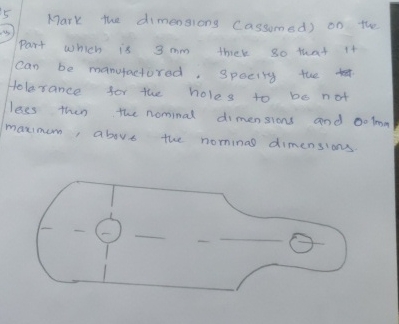 15
Mark the dimensions (assumed) on the
Part which is 3 mm thick so that it
can be manufactored. Specity the
tolerance for the holes to be not
less then the nominal dimensions and 0.1mm
maximum, above the nominal dimensions.